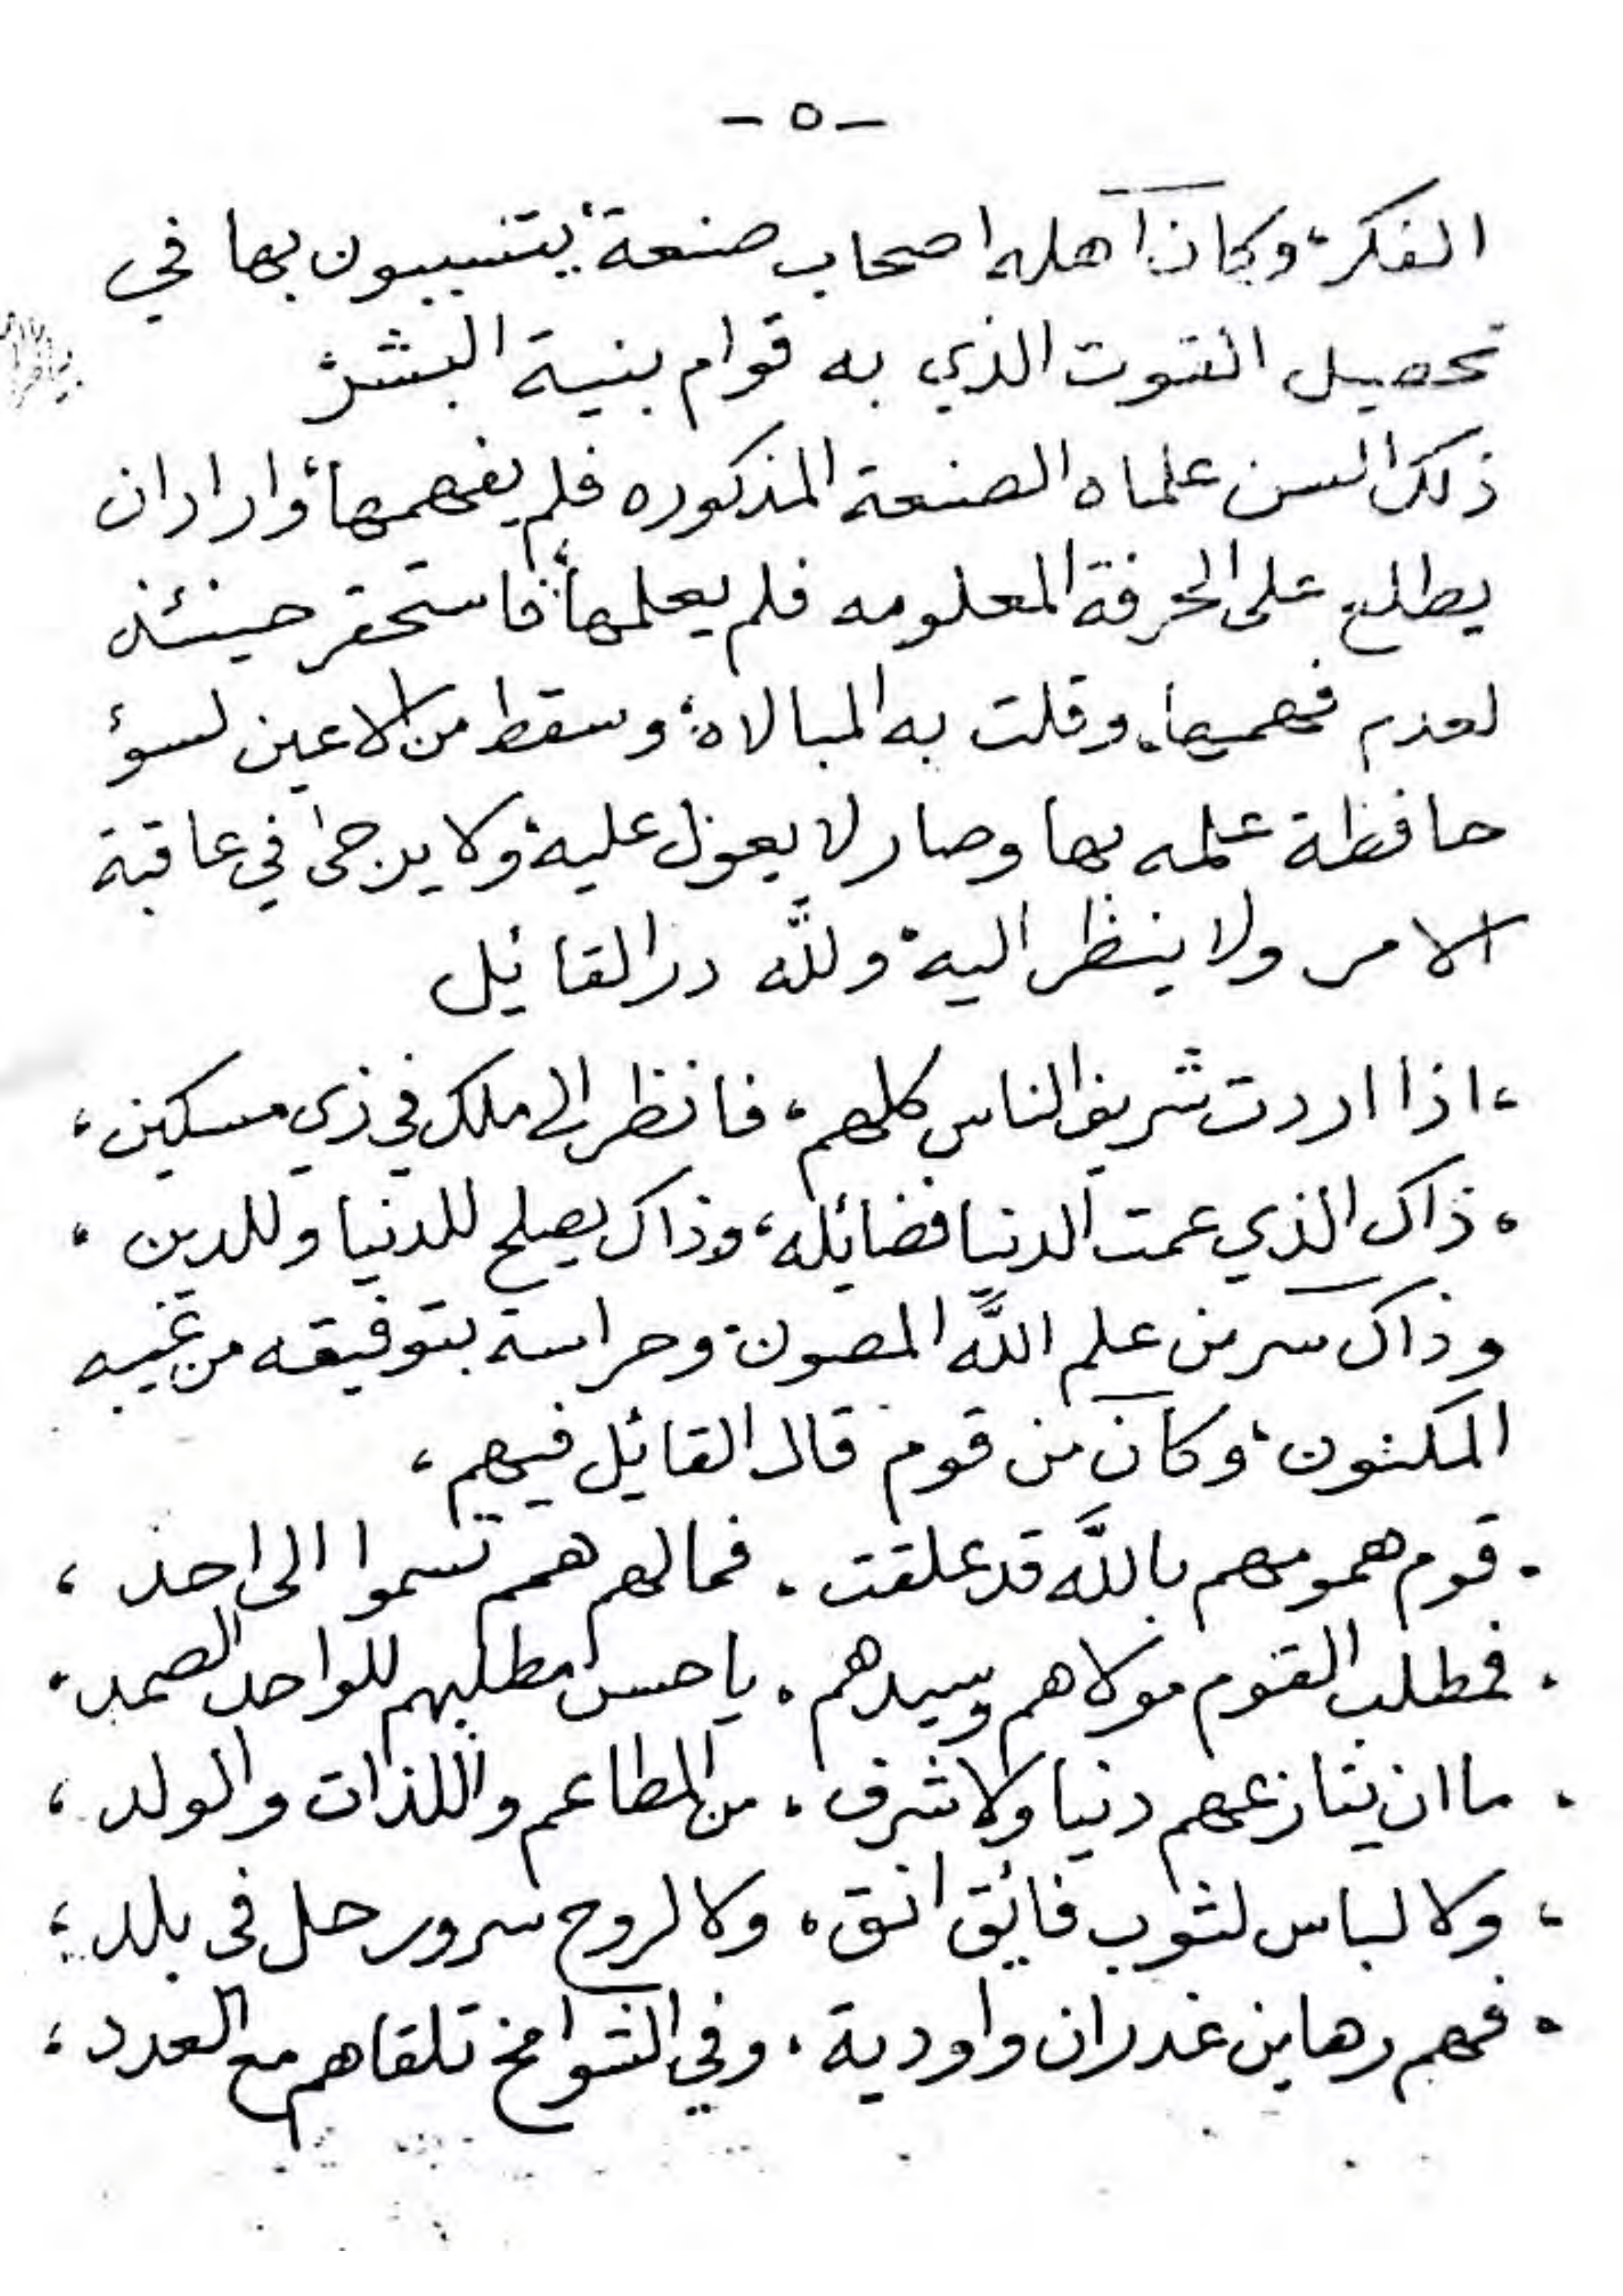 - ٥ -
الفكر، وكان اهله اصحاب صنعة، يتسببون بها في
تحصيل القوت الذي به قوام بنية البشر،
ذلك السن علماه الصنعة المذكوره فلم يفهمها، واراد ان
يطلع على الحرفة المعلومه فلم يعلمها، فاستحقر حينئذ
لعدم فهمها، وقلت به المبالاه، وسقط من الاعين لسؤ
حافظة علمه بها وصار لا يعول عليه، ولا يرجى في عاقبة
الامر ولا ينظر اليه، ولله در القائيل
، اذا اردت شريف الناس كلهم ، فانظر الى ملك في زي مسكين ،
، ذاك الذي عمت الدنيا فضائله ، وذاك يصلح للدنيا وللدين ،
وذاك سر من علم الله المصون، وحراسة بتوفيقه من غيبه
المكنون، وكان من قوم قال القائيل فيهم ،
. قوم همومهم بالله قد علقت . فما لهم همم تسموا الى احد ،
. فمطلب القوم مولاهم وسيدهم . يا حسن مطلبهم للواحد الصمد .
. ما ان ينازعهم دنيا ولا شرف . من المطاعم واللذات والولد ،
، ولا لباس لثوب فائق انق . ولا لروح سرور حل في بلد ،
. فهم رهاين غدران واودية . وفي الشوامخ تلقاهم مع العدد ،